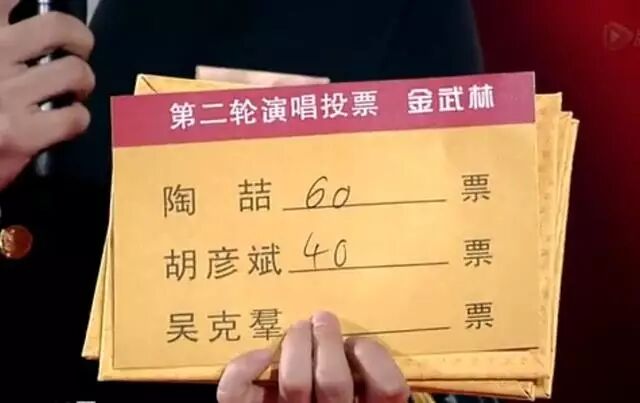 第二轮演唱投票 金武林
陶 喆 60 票
胡彦斌 40 票
吴克羣 票